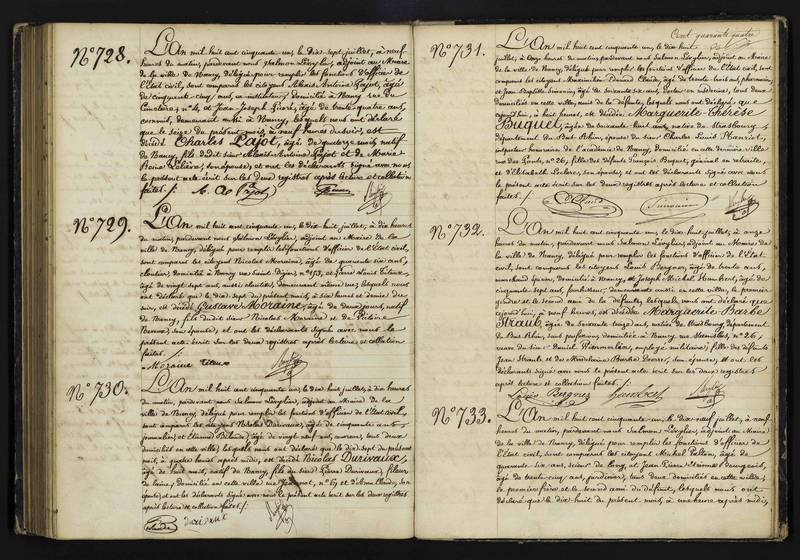 N.° 728.
L'An mil huit cent cinquante un, le dix sept juillet, à neuf
heures du matin, pardevant nous Salmon Lévylier, adjoint au Maire
de la ville de Nancy, délégué pour remplir les fonctions d'officier de
l'Etat civil, sont comparus les citoyens Alexis Antoine Pajot, âgé
de cinquante cinq ans, domicilié à Nancy rue du
Cimetière, n° 4, et Jean Joseph Pierré, âgé de trente quatre ans,
demeurant aussi à Nancy, lesquels nous ont déclaré
que le seize du présent mois, à neuf heures du soir, est
décédé Charles Pajot, âgé de quatorze mois, natif
de Nancy, fils dudit sieur Alexis Antoine Pajot et de Marie
son épouse; et ont les déclarants signé avec nous
le présent acte écrit sur les deux registres après lecture et collation
faites ./.
N.° 729.
L'An mil huit cent cinquante un, le dix huit juillet, à dix heures
du matin, pardevant nous Salmon Lévylier, adjoint au Maire de la
ville de Nancy, délégué pour remplir les fonctions d'officier de l'Etat civil,
sont comparus les citoyens Nicolas Moraine, âgé de quarante six ans,
cloutier, domicilié à Nancy rue Saint Dizier, n° 153, et
âgé de vingt sept ans, aussi cloutier, demeurant même rue, lesquels nous
ont déclaré que le dix sept du présent mois, à six heures et demie du
soir, est décédé Gustave Moraine, âgé de deux jours, natif
de Nancy, fils dudit sieur Nicolas Moraine et de
son épouse; et ont les déclarants signé avec nous le
présent acte écrit sur les deux registres après lecture et collation
faites ./.
Moraine
N.° 730.
L'An mil huit cent cinquante un, le dix huit juillet, à dix heures
du matin, pardevant nous Salmon Lévylier, adjoint au Maire de la
ville de Nancy, délégué pour remplir les fonctions d'officier de l'Etat civil,
sont comparus les citoyens Nicolas Durivaux, âgé de cinquante ans,
journalier, et Etienne âgé de vingt neuf ans, tous deux
domiciliés en cette ville, lesquels nous ont déclaré que le dix sept du présent
mois, à quatre heures après midi, est décédé Nicolas Durivaux,
âgé de huit mois, natif de Nancy, fils du sieur Pierre Durivaux, fileur
de laine, domicilié en cette ville rue n° 69 et d'Anne son
épouse; et ont les déclarants signé avec nous le présent acte écrit sur les deux registres
après lecture et collation faites ./.
Durivaux
Cent quarante quatre
N.° 731.
L'An mil huit cent cinquante un, le dix huit
juillet, à onze heures du matin, pardevant nous Salmon Lévylier, adjoint au Maire
de la ville de Nancy, délégué pour remplir les fonctions d'officier de l'Etat civil, sont
comparus les citoyens Maximilien Dinand âgé de trente huit ans, pharmacien,
et Jean Baptiste Simonin, âgé de soixante six ans, docteur en médecine, tous deux
domiciliés en cette ville, amis de la défunte, lesquels nous ont déclaré que
aujourd'hui, à huit heures, est décédée Marguerite-Thérèse
Buquet, âgée de soixante huit ans, native de Strasbourg,
département du Bas-Rhin, épouse du sieur Charles Louis
inspecteur honoraire de l'académie de Nancy, domiciliée en cette dernière ville
n° 26, fille des défunts François Buquet, général en retraite,
et d'Elisabeth Leclerc, son épouse; et ont les déclarants signé avec nous
le présent acte écrit sur les deux registres après lecture et collation
faites ./.
Simonin
N.° 732.
L'An mil huit cent cinquante un, le dix huit juillet, à onze
heures du matin, pardevant nous Salmon Lévylier, adjoint au Maire de
la ville de Nancy, délégué pour remplir les fonctions d'officier de l'Etat
civil, sont comparus les citoyens Louis Bugnez, âgé de trente ans,
marchand épicier, domicilié à Nancy, et Joseph Michel Humbert, âgé de
cinquante sept ans, demeurant aussi en cette ville, le premier
gendre et le second ami de la défunte, lesquels nous ont déclaré que
aujourd'hui, à neuf heures, est décédée Marguerite Barbe
Straub, âgée de soixante treize ans, native de Strasbourg, département
du Bas Rhin, sans profession, domiciliée à Nancy rue Stanislas, n° 26,
veuve du sieur Daniel employé militaire, fille des défunts
Jean Straub et de Madeleine Barbe son épouse; et ont les
déclarants signé avec nous le présent acte écrit sur les deux registres
après lecture et collation faites ./.
Louis Bugnez Humbert
N.° 733.
L'An mil huit cent cinquante un, le dix neuf juillet, à neuf
heures du matin, pardevant nous Salmon Lévylier, adjoint au Maire
de la ville de Nancy, délégué pour remplir les fonctions d'officier de
l'Etat civil, sont comparus les citoyens Michel âgé de
quarante six ans, scieur de long, et Jean Pierre
âgé de trente cinq ans, jardinier, tous deux domiciliés en cette ville,
le premier frère et le second ami du défunt, lesquels nous ont
déclaré que le dix huit du présent mois, à une heure après midi,